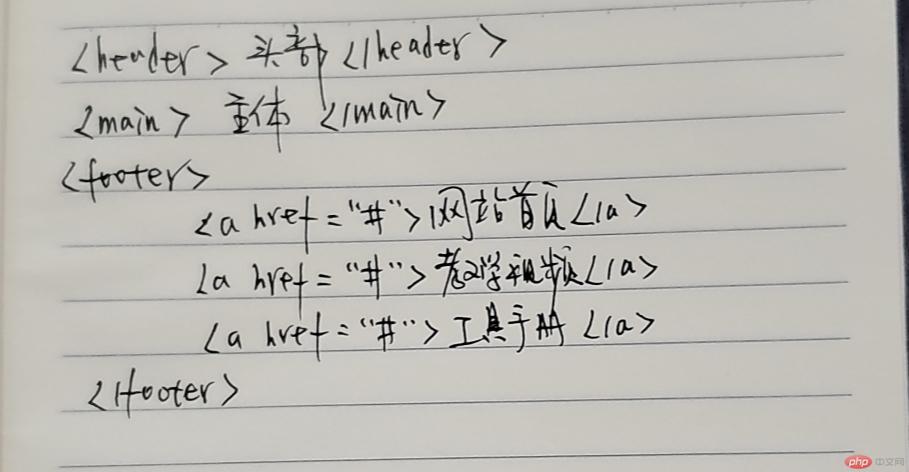 <header> 头部 </header>
<main> 主体 </main>
<footer>
<a href="#">网站首页</a>
<a href="#">教学视频</a>
<a href="#">工具手册</a>
</footer>
php 中文网